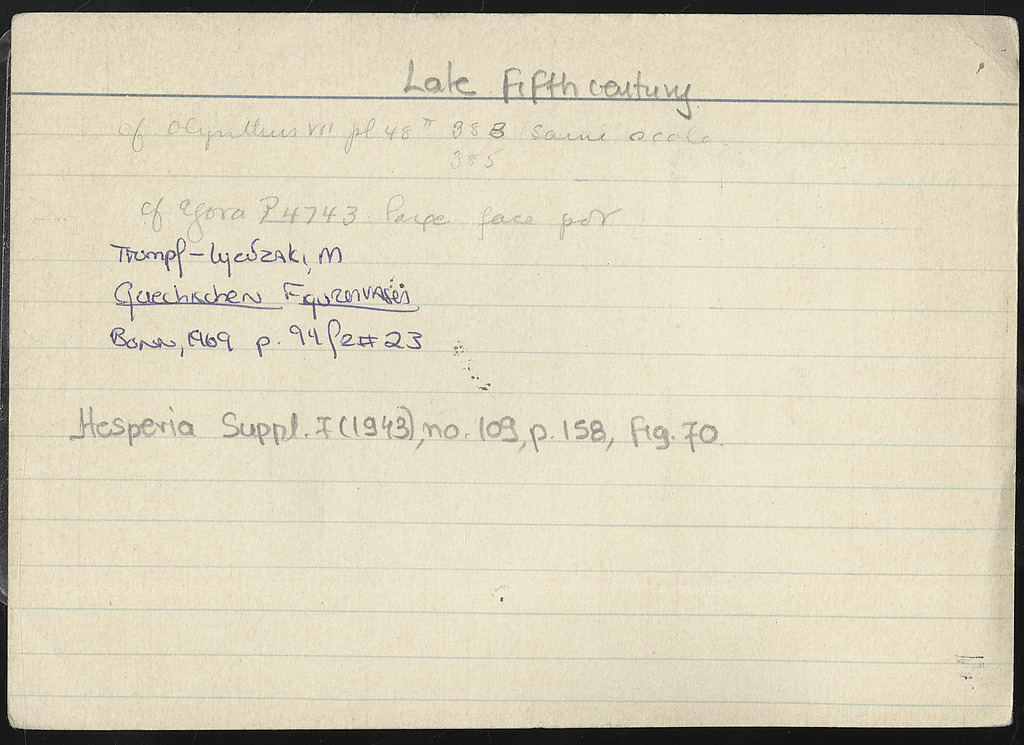 Late fifth century
cf Olynthus VII pl 48 388 same scale
385
cf Agora P4743 large face pot
Trumpf-Lyritzaki, M
Griechischen Figurenvasen
Bonn, 1969 p. 94 f2#23
Hesperia Suppl. 7 (1943), no. 109, p. 158, fig. 70.